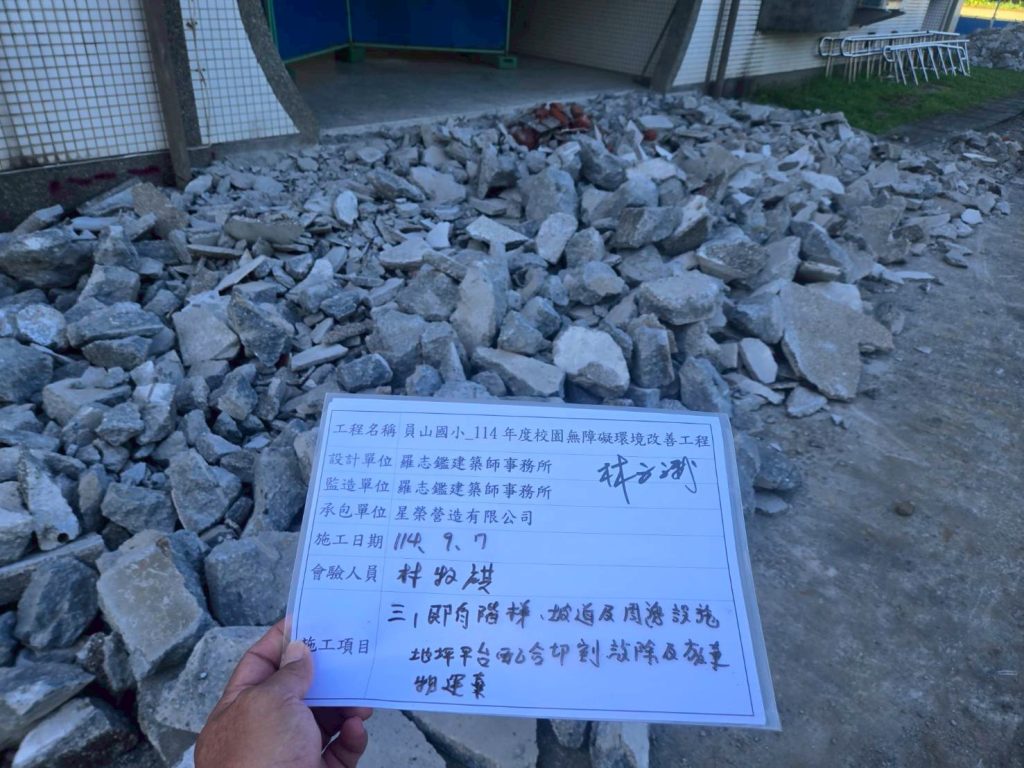 工程名稱 員山國小_114年度校園無障礙環境改善工程
設計單位 羅志鑑建築師事務所
監造單位 羅志鑑建築師事務所
承包單位 星榮營造有限公司
施工日期 114. 9. 7
會驗人員 林牧
施工項目 三,1即有階梯、坡道及周邊設施
地坪平台配合切割敲除及廢棄
物運棄